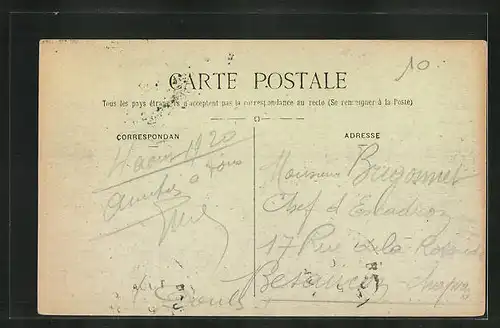 10
CARTE POSTALE
Tous les pays étrangers n'acceptent pas la correspondance au recto (Se renseigner à la Poste)
CORRESPONDAN
4 aout 1920
Amitiés à tous
ADRESSE
Monsieur Brigonnet
Chef d'Escadron
17 Rue de la
Besançon
Doubs